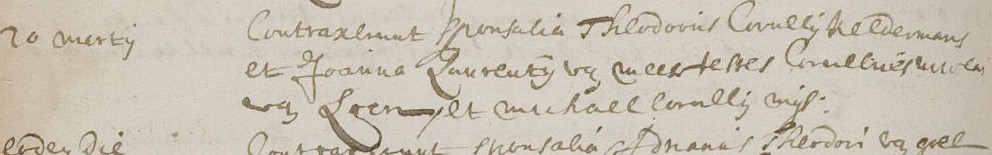 20 martij Contraxerunt sponsalia Theodorus Cornelij Keldermans
et Joanna Laurentij va meer testes Cornelius
van Loen, et michael Cornelij
eodem die Contraxerunt sponsalia Adrianus Theodori va